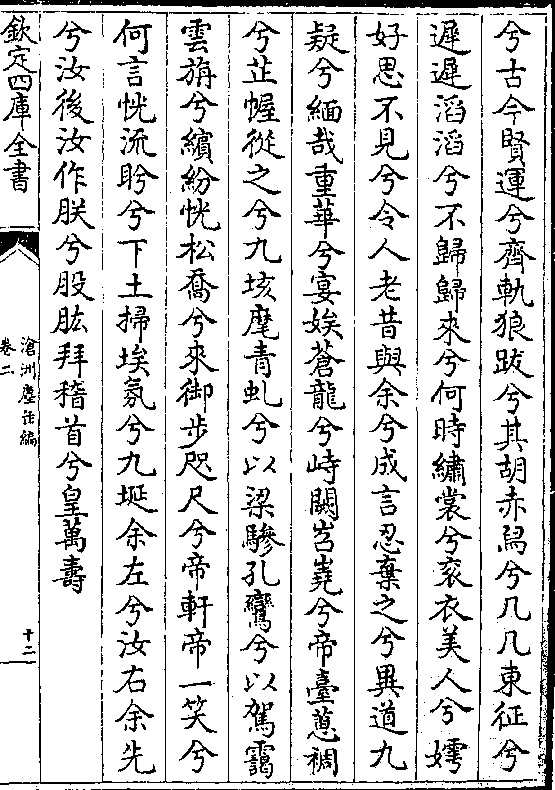 兮古今賢運兮齊軌狼跋兮其胡赤舄兮几几東征兮
遲遲滔滔兮不歸歸來兮何時繡裳兮衮衣美人兮嫮
好思不見兮令人老昔與余兮成言忍棄之兮異道九
疑兮緬哉重華兮宴娭蒼龍兮峙闕岧嶤兮帝臺蔥裯
兮芷幄從之兮九垓麾青虬兮以梁驂孔鸞兮以駕靄
雲旃兮繽紛恍松喬兮來御步咫尺兮帝軒帝一笑兮
何言恍流眄兮下土掃埃氛兮九埏余左兮汝右余先
兮汝後汝作朕兮股肱拜稽首兮皇萬壽
欽定四庫全書
滄洲塵缶編
卷二
十二